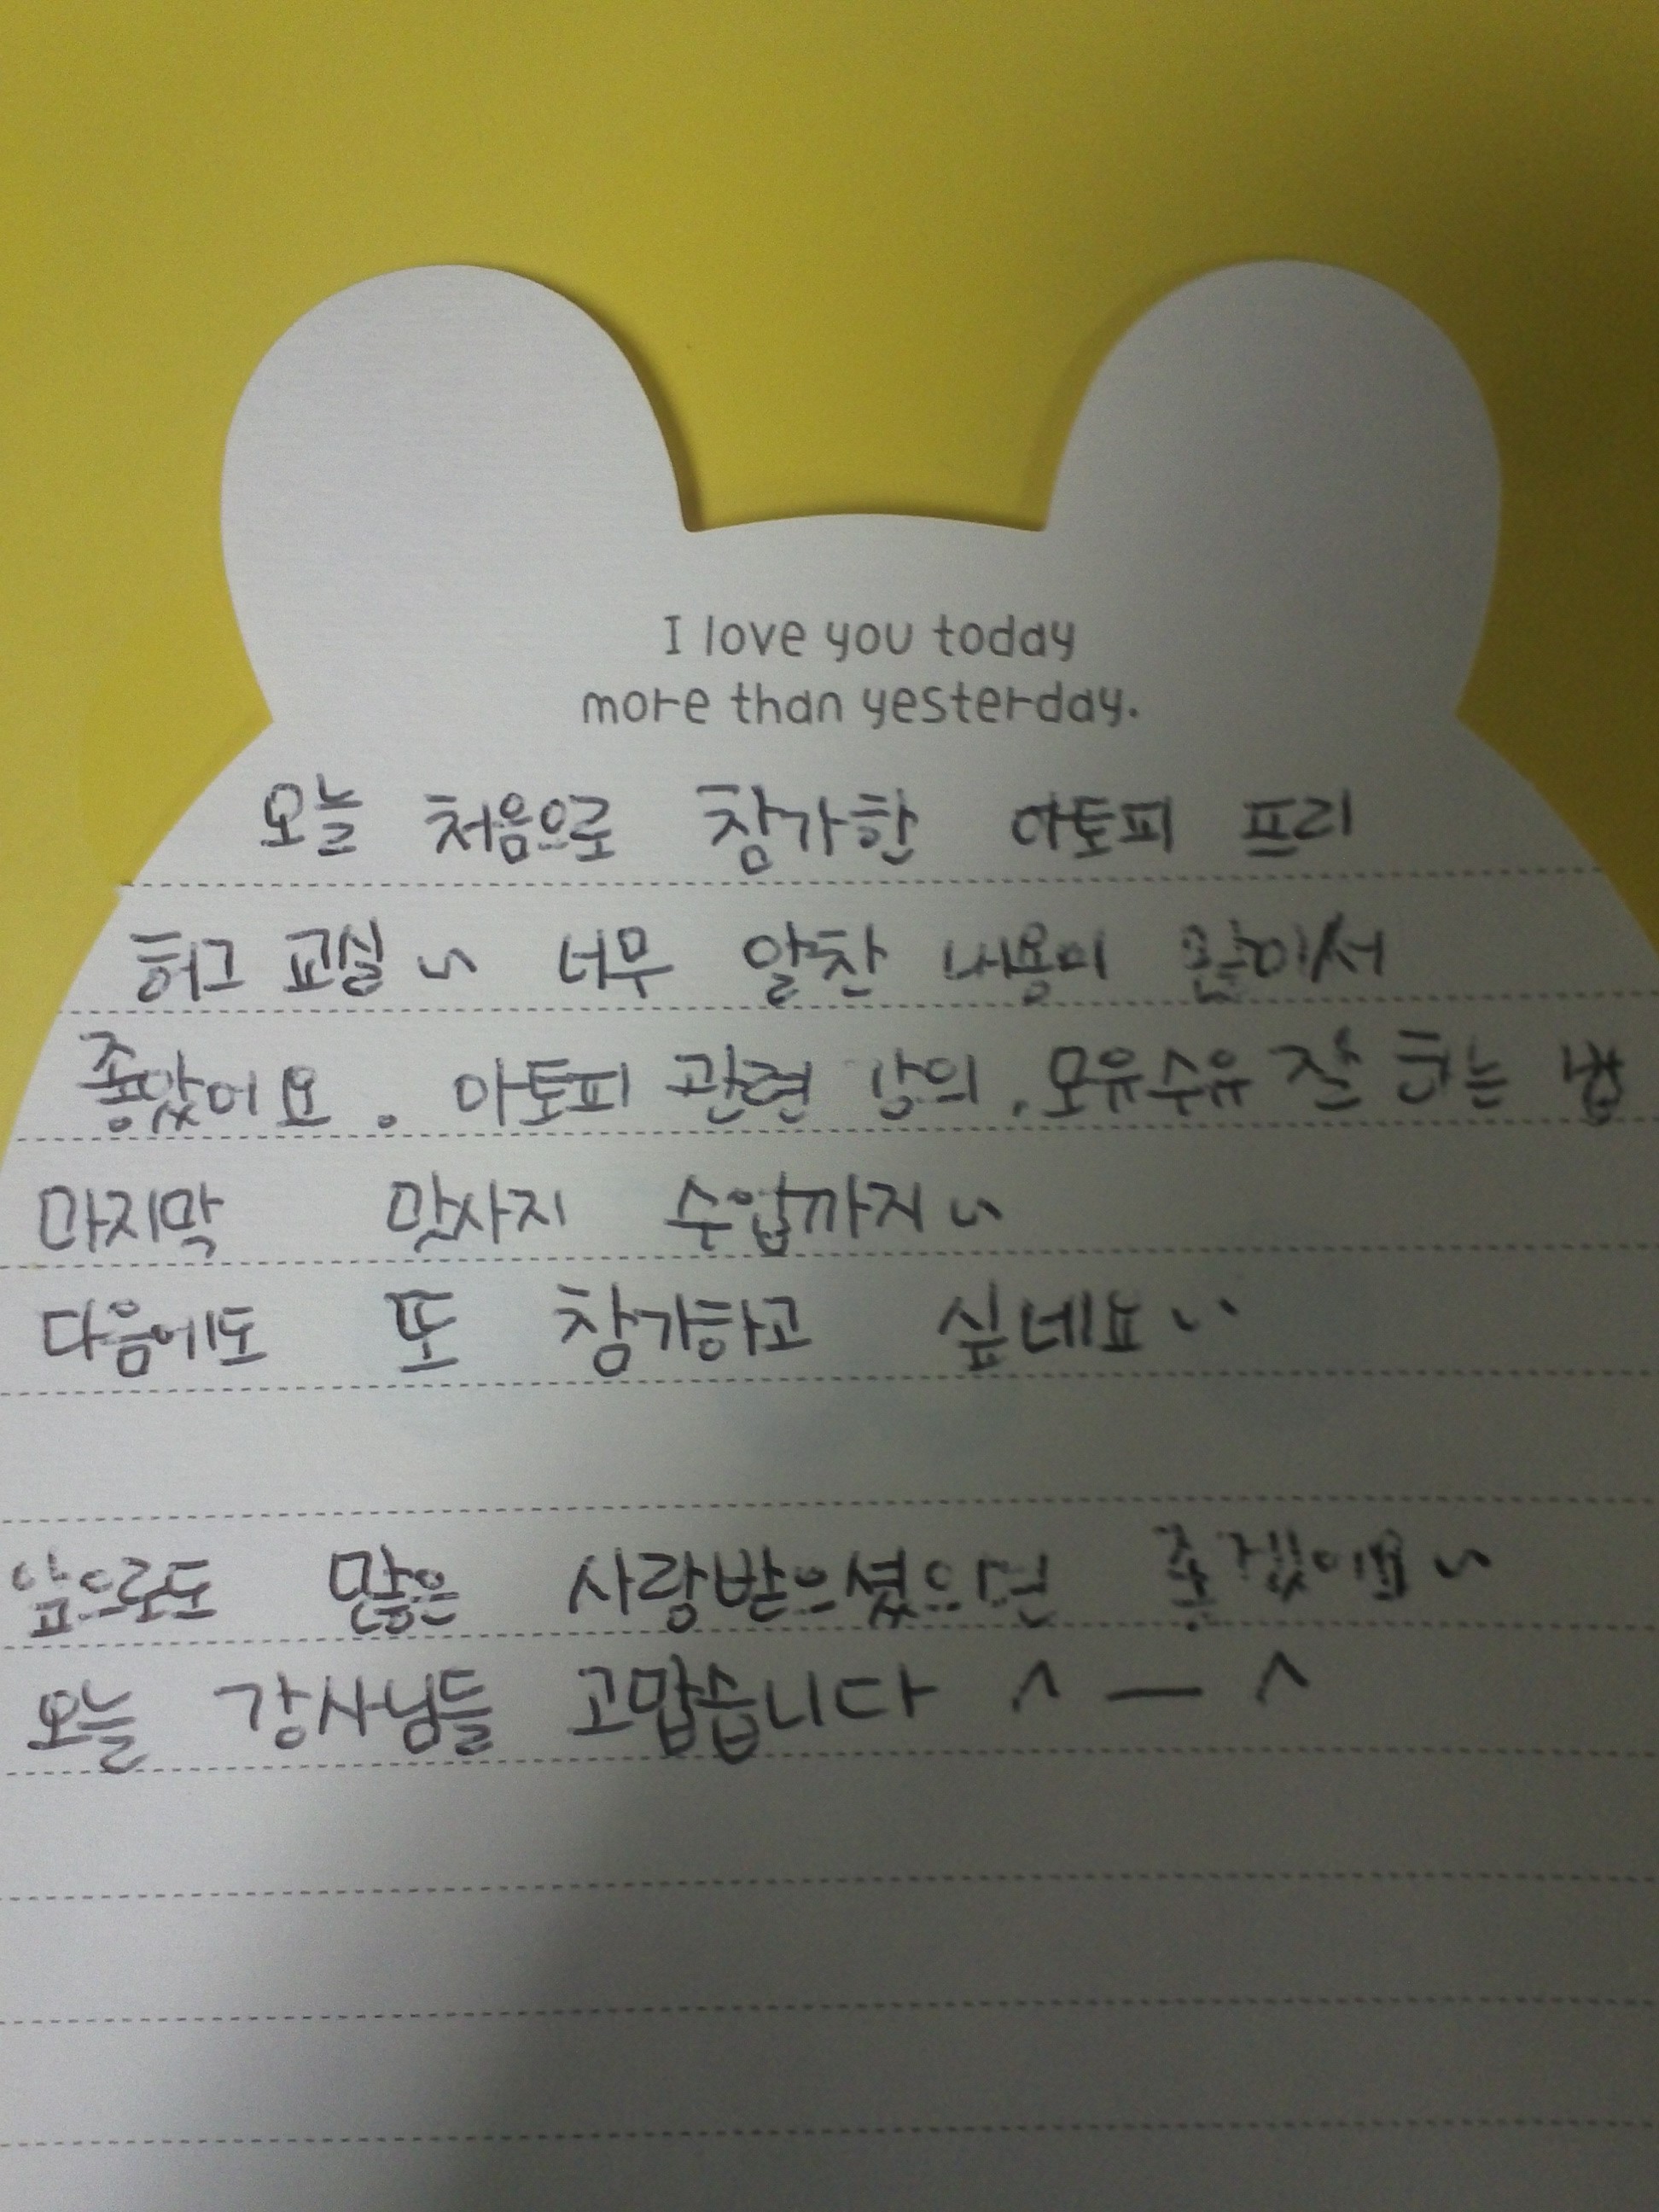 I love you today
more than yesterday.
오늘 처음으로 참가한 아토피 프리
허그 교실~ 너무 알찬 내용이 많아서
좋았어요. 아토피 관련 강의, 모유수유 잘 하는 법
마지막 맛사지 수업까지~
다음에도 또 참가하고 싶네요~
앞으로도 많은 사랑받으셨으면 좋겠어요~
오늘 강사님들 고맙습니다 ^ — ^